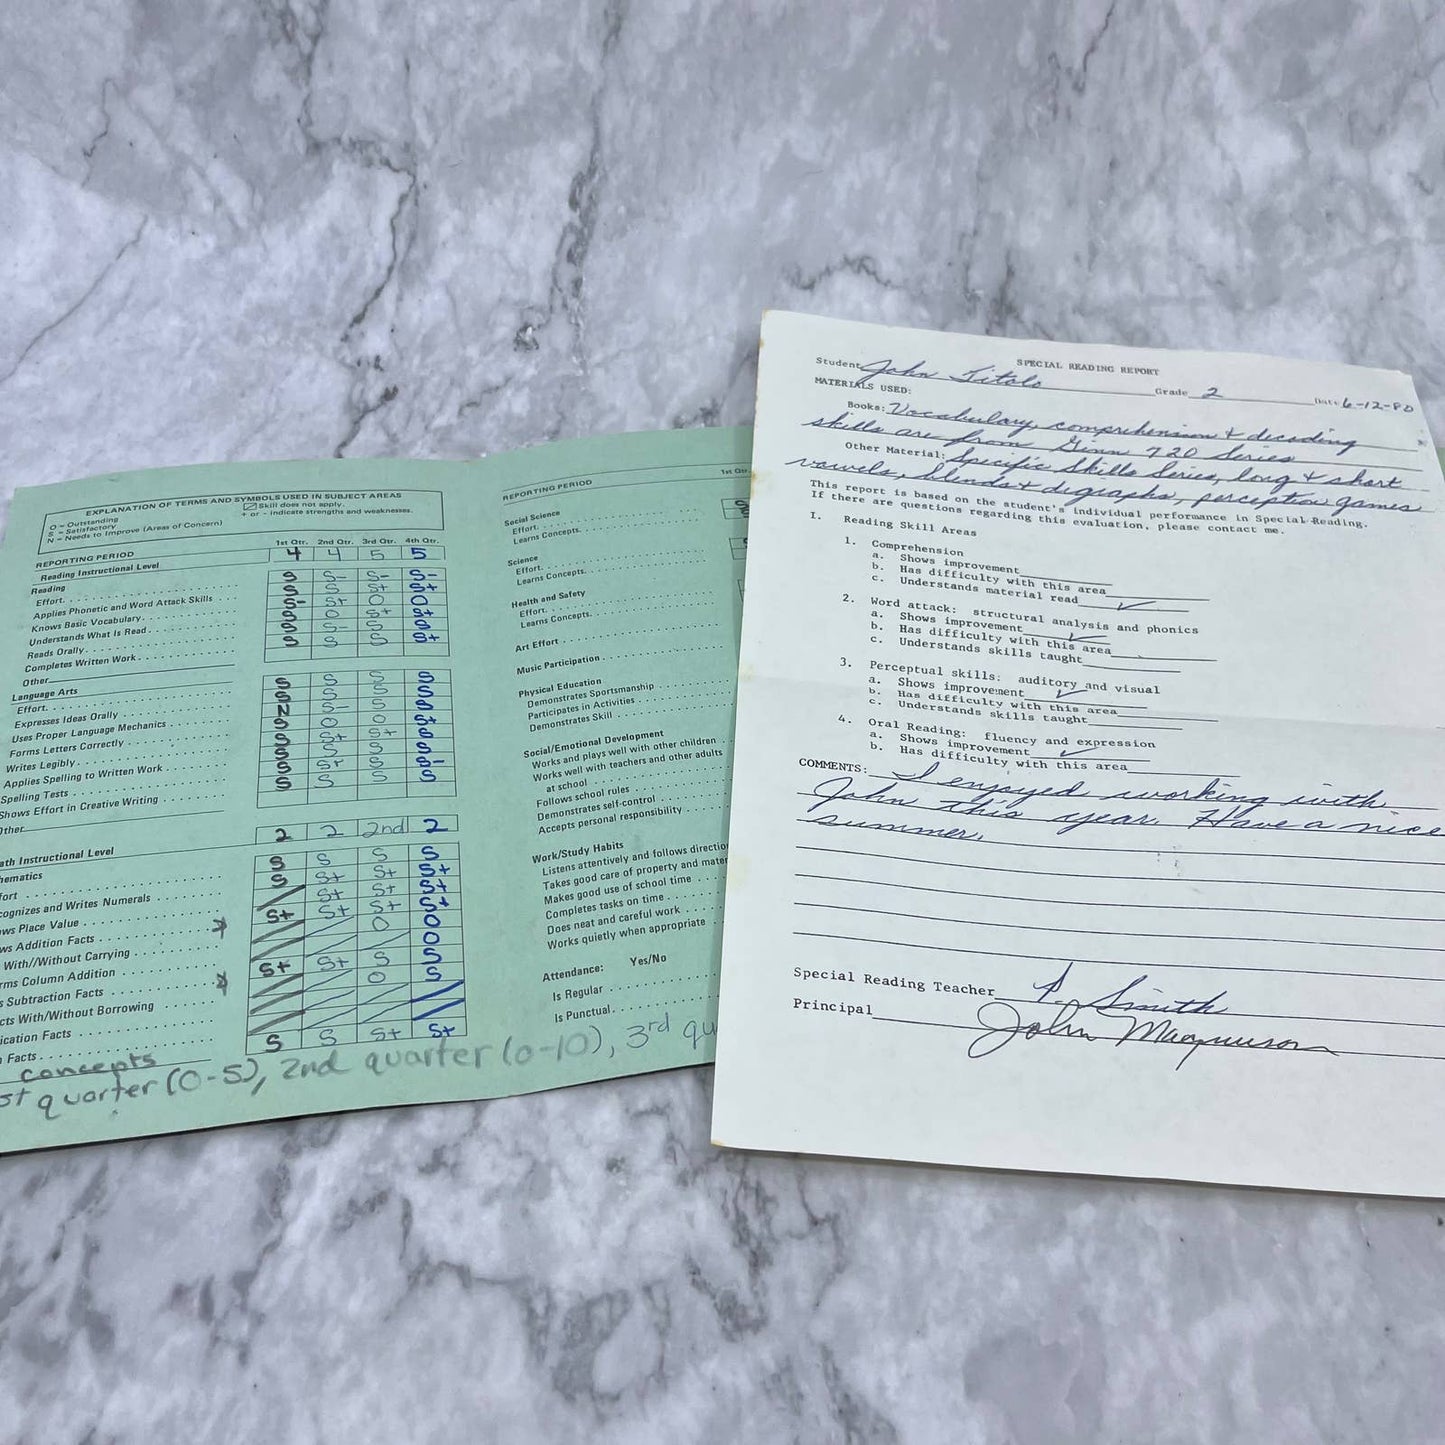 EXPLANATION OF TERMS AND SYMBOLS USED IN SUBJECT AREAS
O = Outstanding
S = Satisfactory
N = Needs to Improve (Areas of Concern)
Skill does not apply.
+ or - indicate strengths and weaknesses.
REPORTING PERIOD
1st Qtr. 2nd Qtr. 3rd Qtr. 4th Qtr.
Reading Instructional Level 4 4 5 5
Reading
Effort
Applies Phonetic and Word Attack Skills
Knows Basic Vocabulary
Understands What Is Read
Reads Orally
Completes Written Work
Other
Language Arts
Effort
Expresses Ideas Orally
Uses Proper Language Mechanics
Forms Letters Correctly
Writes Legibly
Applies Spelling to Written Work
Spelling Tests
Shows Effort in Creative Writing
Other
ath Instructional Level 2 2 2nd 2
hematics
fort
cognizes and Writes Numerals
ows Place Value
ws Addition Facts
With//Without Carrying
rms Column Addition
s Subtraction Facts
cts With/Without Borrowing
ication Facts
Facts
concepts S S S+ S+
st quarter (0-5), 2nd quarter (0-10), 3rd qu
REPORTING PERIOD
1st Qtr.
Social Science
Effort
Learns Concepts
Science
Effort
Learns Concepts
Health and Safety
Effort
Learns Concepts
Art Effort
Music Participation
Physical Education
Demonstrates Sportsmanship
Participates in Activities
Demonstrates Skill
Social/Emotional Development
Works and plays well with other children
Works well with teachers and other adults
at school
Follows school rules
Demonstrates self-control
Accepts personal responsibility
Work/Study Habits
Listens attentively and follows directio
Takes good care of property and mater
Makes good use of school time
Completes tasks on time
Does neat and careful work
Works quietly when appropriate
Attendance: Yes/No
Is Regular
Is Punctual
SPECIAL READING REPORT
Student John Titolo Grade 2 Date 6-12-80
MATERIALS USED:
Books: Vocabulary, comprehension & decoding
skills are from Ginn 720 Series
Other Material: Specific Skills Series, long & short
vowels, blends & digraphs, perception games
This report is based on the student's individual performance in Special Reading.
If there are questions regarding this evaluation, please contact me.
I. Reading Skill Areas
1. Comprehension
a. Shows improvement
b. Has difficulty with this area
c. Understands material read ✓
2. Word attack: structural analysis and phonics
a. Shows improvement ✓
b. Has difficulty with this area
c. Understands skills taught
3. Perceptual skills: auditory and visual
a. Shows improvement ✓
b. Has difficulty with this area
c. Understands skills taught
4. Oral Reading: fluency and expression
a. Shows improvement ✓
b. Has difficulty with this area
COMMENTS: I enjoyed working with
John this year. Have a nice
summer.
Special Reading Teacher P. Smith
Principal John Magnuson